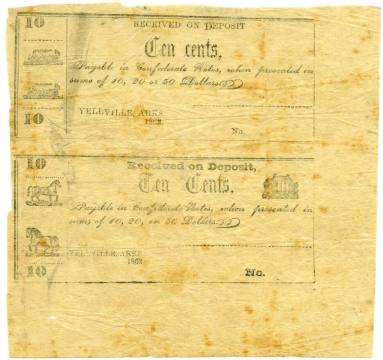 10 RECEIVED ON DEPOSIT
Ten cents,
Payable in Confederate Notes, when presented in
sums of 10, 20 or 50 Dollars.
YELLVILLE, ARKS
10 1862 No.
10 Received on Deposit,
Ten Cents,
Payable in Confederate Notes, when presented in
sums of 10, 20, or 50 Dollars.
YELLVILLE, ARKS
1862
10 No.